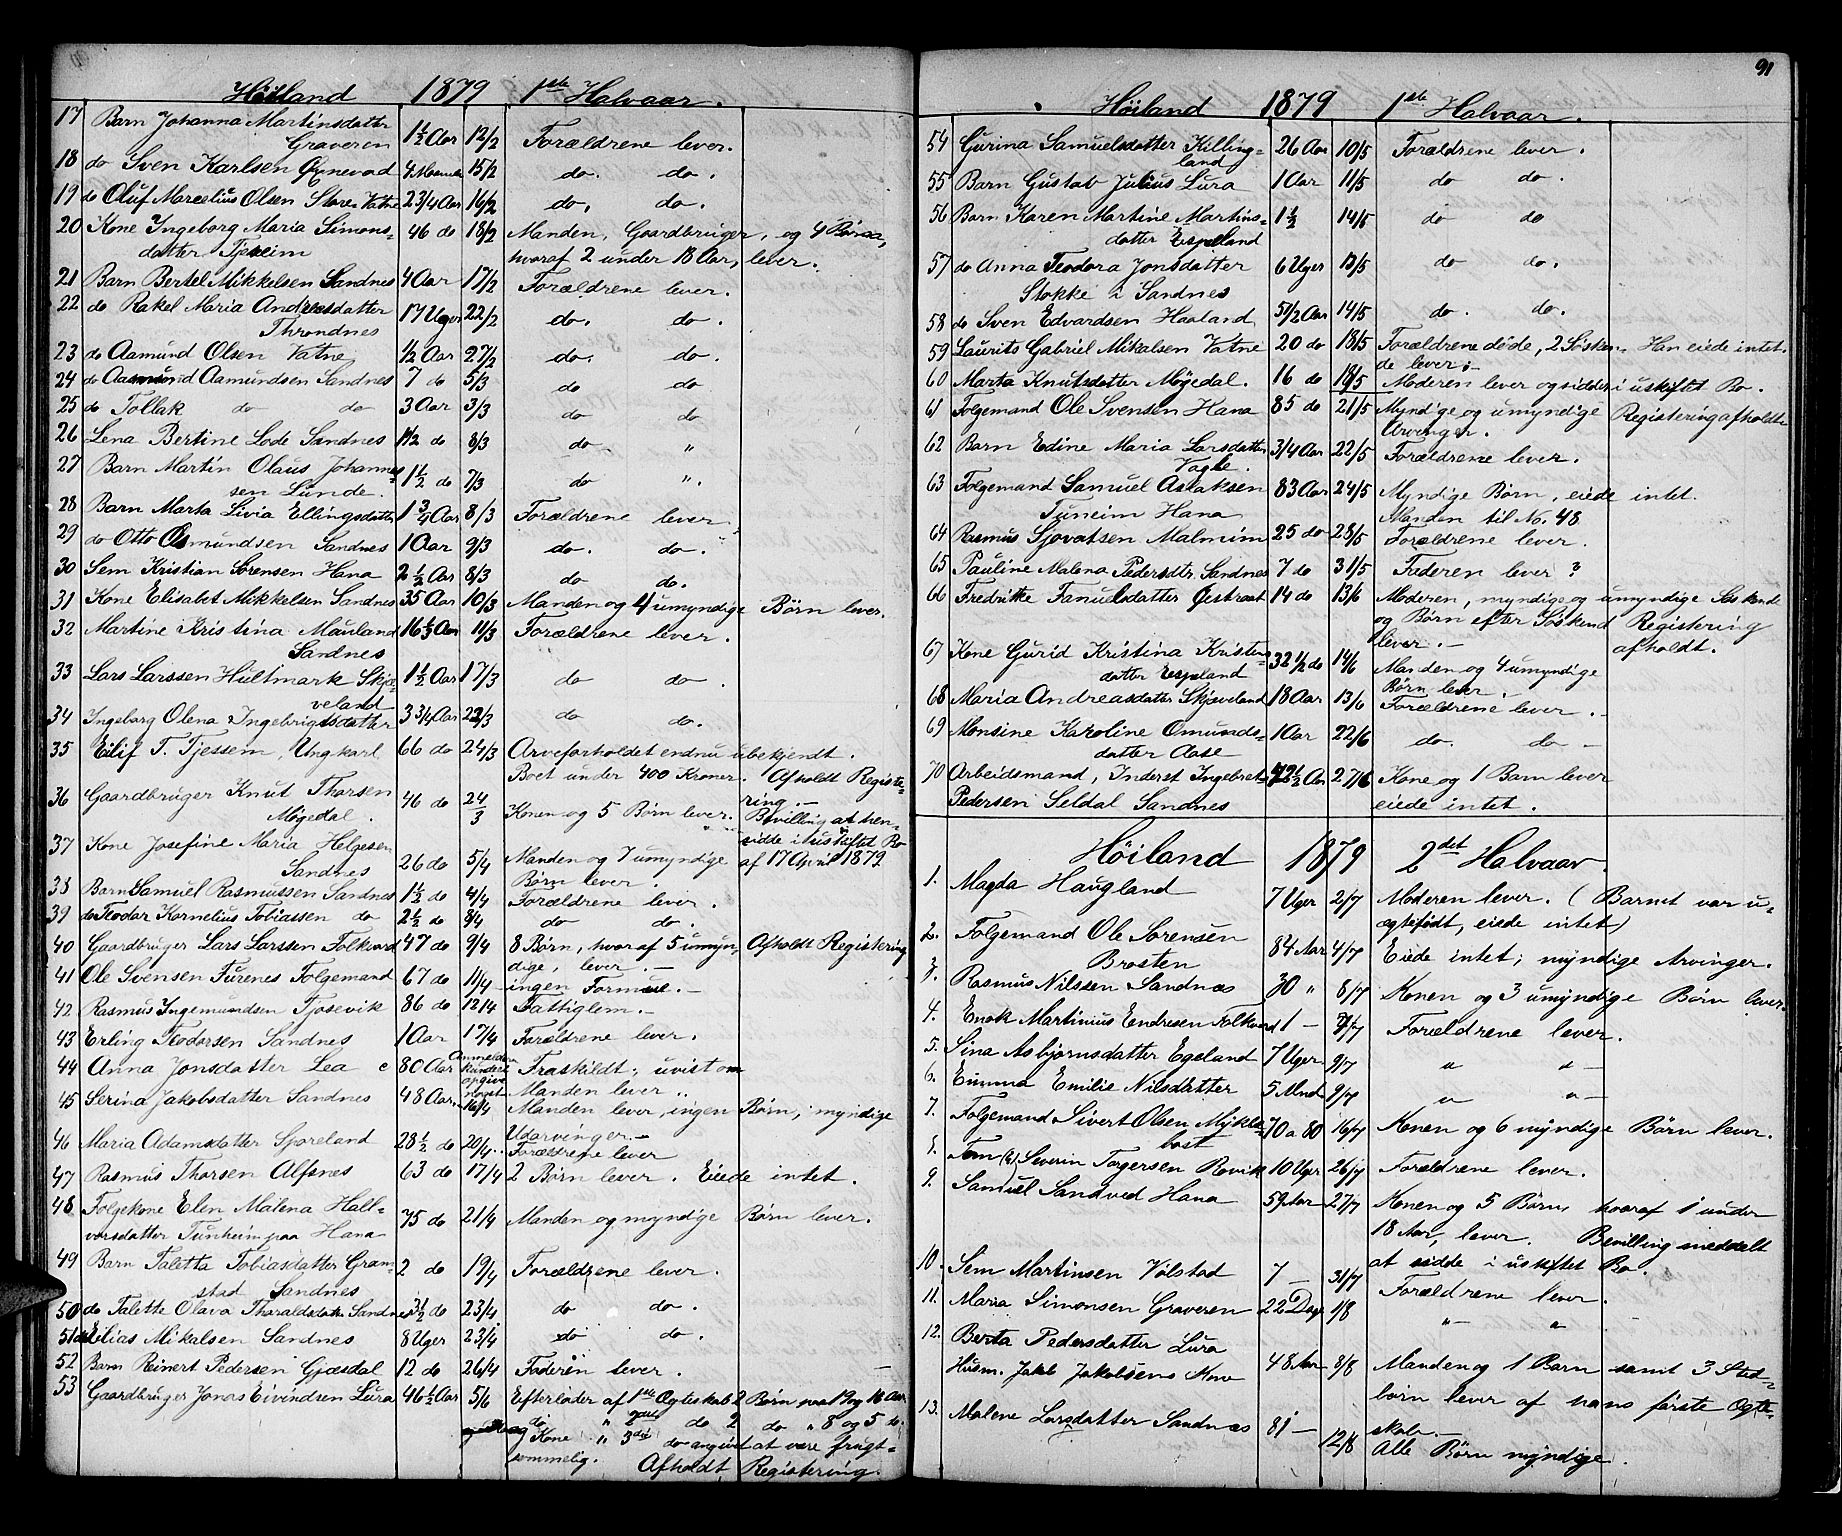 Høiland 1879 1ste Halvaar.
17 Barn Johanna Martinsdatter
Graveren 1½ Aar 12/2 Forældrene lever.
18 do Sven Karlsen Øxnevad 4 Maaneder 15/2 do. do.
19 do Oluf Marcelius Olsen Store Vatne 2 3/4 Aar 16/2 do. do.
20 Kone Ingeborg Maria Simons- 46 do 18/2 Manden, Gaardbruger, og 4 Børn,
datter Tjeseim hvoraf 2 under 18 Aar, lever.
21 Barn Bertel Mikkelsen Sandnes 4 Aar 17/2 Forældrene lever.
22 do Rakel Maria Andreasdatter
Throndnes 17 Uger 22/2 do. do.
23 do Aamund Olsen Vatne 1/2 Aar 27/2 do. do.
24 do Aasmund Aamundsen Sandnes 7 do 5/3 do do
25 do Tollak do do 3 Aar 3/3 do do
26 Lena Bertine Lode Sandnes 1½ do 8/3 do "
27 Barn Martin Olaus Johannes-
sen Lunde. 1½ do 7/3 do ".
28 Barn Marta Livia Ellingsdatter 1 3/4 Aar 8/3 Forældrene lever.
29 do Otto Osmundsen Sandnes 1 Aar 9/3 do. do.
30 Sem Kristian Sørensen Hana 2½ Aar 8/3 do do.
31 Kone Elisabet Mikkelsen Sandnes 35 Aar 10/3 Manden og 4 umyndige Børn lever.
32 Martine Kristina Mauland 16⅓ Aar 11/3 Forældrene lever.
Sandnes
33 Lars Larssen Hultmark Skjæ- 1½ Aar 17/3 do do.
veland
34 Ingeborg Olena Ingebrigtsdatter 3 3/4 Aar 22/3 do do.
35 Eilif T. Tjessem, Ungkarl 66 do 24/3 Arveforholdet endnu ubekjendt.
Boet under 400 Kroner. Afholdt Registe-
ring.-
36 Gaardbruger Knut Thorsen 46 do 24/3 Konen og 5 Børn lever. Bevilling at hen-
Møgedal. sidde i uskiftet Bo
af 17 April 1879
37 Kone Josefine Maria Helgesen
Sandnes 26 do 5/4 Manden og 7 umyndige
Børn lever.
38 Barn Samuel Rasmussen Sandnes 1½ do 4/4 Forældrene lever.
39 do Teodor Kornelius Tobiassen do 2½ do 8/4 do do.
40 Gaardbruger Lars Larssen Folkvord 47 do 9/4 8 Børn, hvoraf 5 umyn- Afholdt Registering
dige, lever.-
41 Ole Svensen Furenes Folgemand 67 do 11/4 ingen Formue.-
42 Rasmus Ingemundsen Tjosevik 86 do 12/4 Fattiglem.-
43 Erling Teodorsen Sandnes 1 Aar 17/4 Forældrene lever.
44 Anna Jonsdatter Lea 80 Aar Anmelderen kunde ei opgive noget Fraskildt; uvist om
Manden lever
45 Serina Jakobsdatter Sandnes 48 Aar 16/4 Manden lever, ingen Børn, myndige
Udarvinger.-
46 Maria Adamsdatter Sporeland 28½ do 20/4 Forældrene lever
47 Rasmus Thorsen Alfsnes 63 do 17/4 2 Børn lever. Eiede intet.
48 Folgekone Elen Malena Hall-
vorsdatter Tunheim paa Hana 75 do 21/4 Manden og myndige Børn lever.
49 Barn Taletta Tobiasdatter Gram-
stad Sandnes 2 do 19/4 Forældrene lever.
50 do Talette Olava Tharaldsdatr Sandnes 3½ do 23/4 do do.
51 do Elias Mikalsen Sandnes 8 Uger 23/4 do do.
52 Barn Reinert Pedersen Gjæsdal 12 do 26/4 Faderen lever.
53 Gaardbruger Jonas Eivindsen Lura 46½ Aar 5/6 Efterlader af 1ste Ægteskab 2 Børn paa 19 og 16 Aar
do " 2det do 2 do " 8 og 5 do
og Kone " 3die do angivet at være frugt-
sommelig. Afholdt Registering.
91
Høiland 1879 1ste Halvaar.
54 Gurina Samuelsdatter Killing-
land 26 Aar 10/5 Forældrene lever.
55 Barn Gustav Julius Lura 1 Aar 11/5 do do.
56 Barn Karen Martine Martins- 1½ 14/5 do do
datter Espeland
57 do Anna Teodora Jonsdatter 6 Uger 13/5 do do.
Stokke i Sandnes
58 do Sven Edvardsen Haaland 5½ Aar 14/5 do. do.
59 Laurits Gabriel Mikalsen Vatne 20 do 18/5 Forældrene døde, 2 Søsken- Han eiede intet.
de lever;-
60 Marta Knutsdatter Møgedal. 16 do 18/5 Moderen lever og sidder i uskiftet Bo.
61 Folgemand Ole Svensen Hana 85 do 21/5 Myndige og umyndige Registering afholdt
Arvinger.
62 Barn Edine Maria Larsdatter
Vagle. 3/4 Aar 22/5 Forældrene lever.
63 Folgemand Samuel Aslaksen 83 Aar 24/5 Myndige Børn, eiede intet.
Tuneim Hana Manden til No. 48
64 Rasmus Sjovatsen Malmim 25 do 28/5 Forældrene lever.
65 Pauline Malena Pedersdtr. Sandnes 7 do 31/5 Faderen lever?
66 Fredrikke Fanuelsdatter Øistraat 14 do 13/6 Moderen, myndige og umyndige Søskende
og Børn efter Søskend Registering
lever.- afholdt.
67 Kone Gurid Kristina Kristens-
datter Espeland 32½ do 14/6 Manden og 4 umyndige
Børn lever.-
68 Maria Andreasdatter Skjæveland 18 Aar 13/6 Forældrene lever.-
69 Monsine Karoline Omunds- 1 Aar 22/6 do. do-
datter Aase
70 Arbeidsmand, Inderst Ingebret 72½ Aar 27/6 Kone og 1 Barn lever
Pedersen Seldal Sandnes eiede intet.
Høiland 1879 2det Halvaar.
1. Magda Haugland 7 Uger 2/7 Moderen lever. (Barnet var u-
ægtefødt, eiede intet)
2. Folgemand Ole Sørensen
Brosten 84 Aar 4/7 Eiede intet; myndige Arvinger.
3. Rasmus Nilssen Sandnes 30 " 8/7 Konen og 3 umyndige Børn lever.
4. Enok Martinius Endresen Folkvord 1 - 7/7 Forældrene lever.
5. Sina Asbjørnsdatter Egeland 7 Uger 9/7 " "-
6. Emma Emilie Nilsdatter 5 Mnd 9/7 " "-
7. Folgemand Sivert Olsen Mykle-
bost 70 a 80 16/7 Konen og 6 myndige Børn lever.
8. Tom (?) Severin Torgersen Rovik 10 Uger 26/7 Forældrene lever.
9. Samuel Sandved Hana 59 Aar 27/7 Konen og 5 Børn, hvoraf 1 under
18 Aar, lever. Bevilling meddelt
at sidde i uskiftet Bo.
10. Sem Martinsen Vølstad 7 - 31/7 Forældrene lever.
11. Maria Simonsen Graveren 22 Dage 1/8 "- "
12. Berta Pedersdatter Lura
Husm. Jakob Jakobsens Kone 48 Aar 8/8 Manden og 1 Barn samt 3 Sted-
børn lever af hans første Ægte-
skab.-
13. Malene Larsdatter Sandnes 81 - 12/8 Alle Børn myndige.